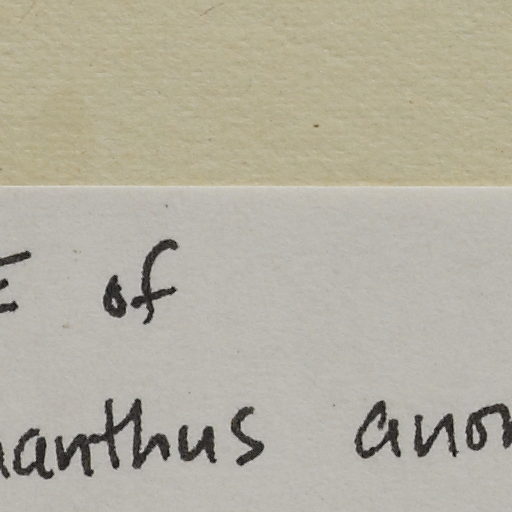 E of
nanthus anon